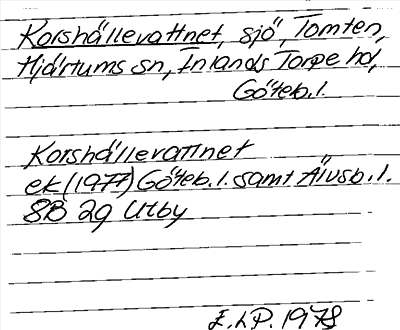 Korshällevattnet, sjö, Tomten,
Hjärtums sn, Inlands Torpe hd,
Göteb. l.
Korshällevattnet
ek (1977) Göteb. l. samt Älvsb. l.
8B 2g Utby
E. hP. 1978